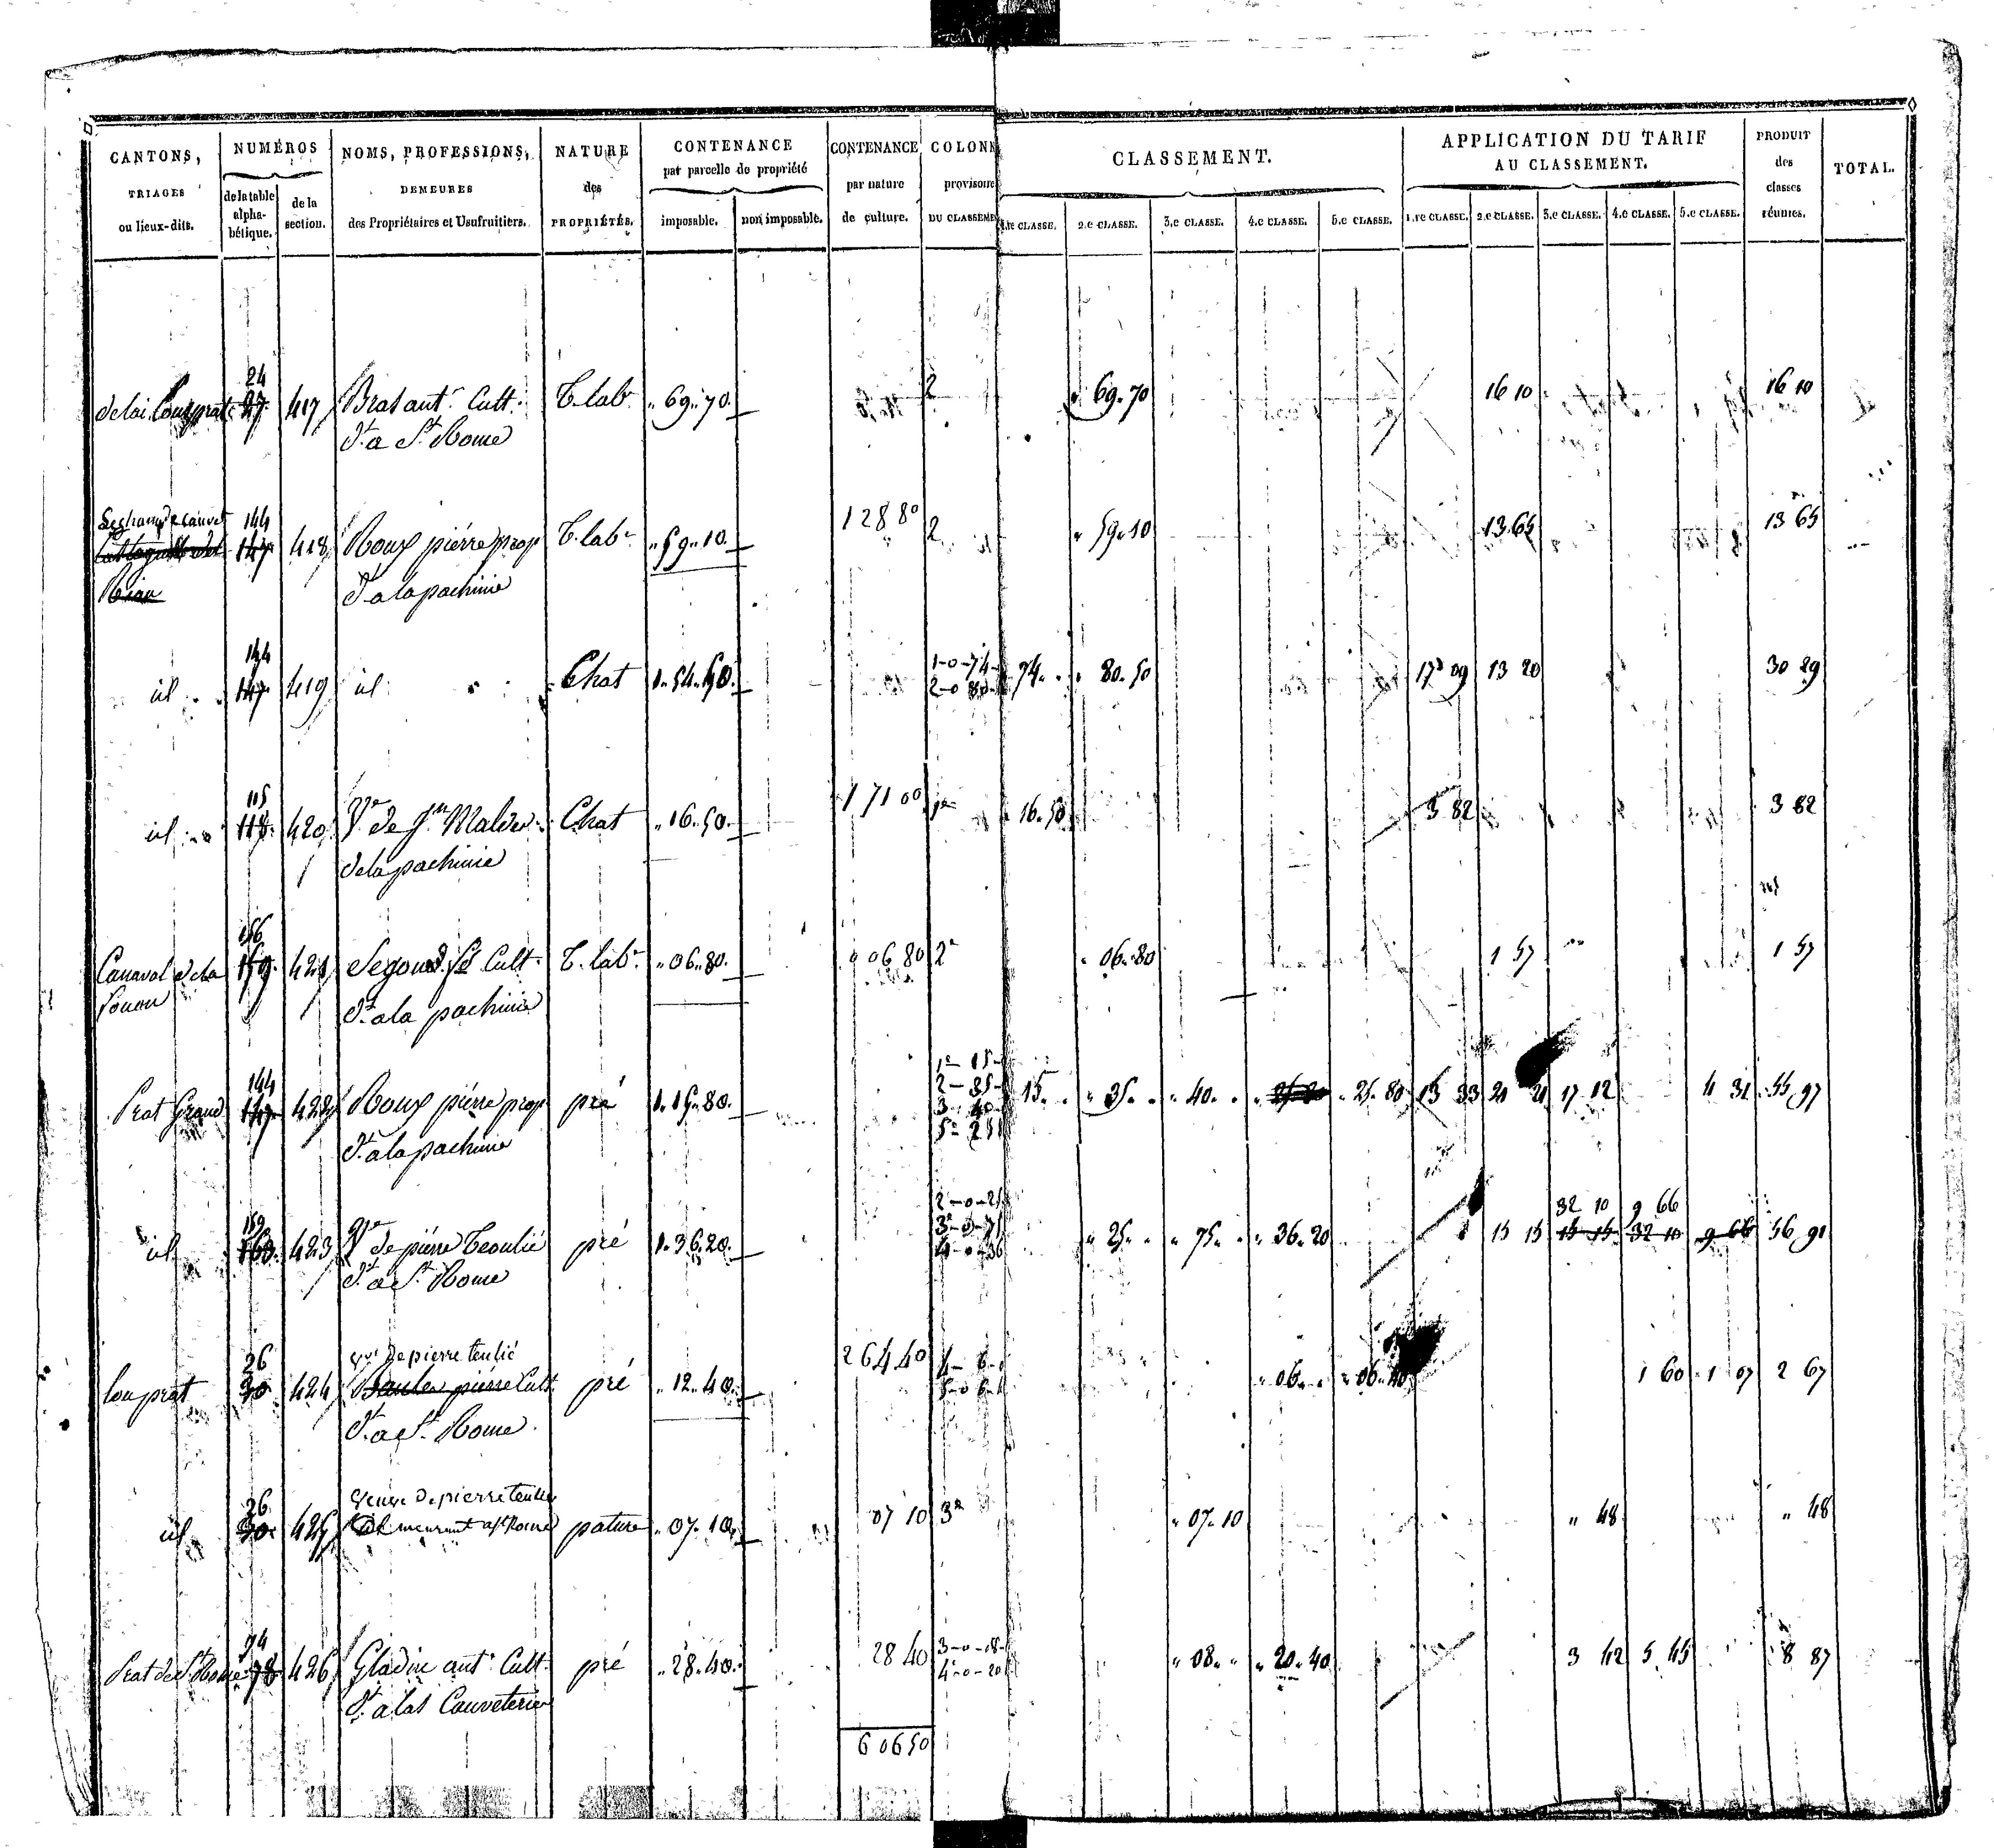 CANTONS, TRIAGES ou lieux-dits.
NUMÉROS de la table alphabétique. de la section.
NOMS, PROFESSIONS, DEMEURES des Propriétaires et Usufruitiers.
NATURE des PROPRIÉTÉS.
CONTENANCE par parcelle de propriété imposable. non imposable.
CONTENANCE par nature de culture.
COLONN provisoire DU CLASSEME
CLASSEMENT. 1.re CLASSE. 2.e CLASSE. 3.e CLASSE. 4.e CLASSE. 5.e CLASSE.
APPLICATION DU TARIF AU CLASSEMENT. 1.re CLASSE. 2.e CLASSE. 3.e CLASSE. 4.e CLASSE. 5.e CLASSE.
PRODUIT des classes réunies.
TOTAL.
24
27 417 Bras ant. Cult. T. lab. " 69. 70. 2 " 69. 70 16 10 16 10
d.t a S.t Rome
144
147 418 Roux piérre prop T. lab.r " 59. 10. 1 28 80 2 " 59. 10 13 65 13 65
d.t a la pachinie
144
id 147 419 id Chat 1. 54. 50. 1-0-74 74. " 80. 50 17 09 13 20 30 29
2-0 80
115
id 420 V.e de J.n Malvie Chat " 16. 50. 1 71 00 1.e 16. 50 3 82 3 82
de la pachinie
156
Canaval de la 159 421 Segond Cult. T. lab.r " 06. 80. " 06 80 2.e " 06. 80 1 57 1 57
d.t a la pachinie
144
Prat Grand 147 422 Roux piérre prop pré 1. 15. 80. 15. " 35. " 40. 25. 80 15 33 21 21 17 12 4 31 55 97
1.e 15
2 - 35
3 - 40
5.e 25
d.t a la pachinie
159
id 163 423 V.e de piérre Teoulié pré 1. 36. 20. " 25. " 75. " 36. 20 15 15 32 10 9 66 56 91
15 15 32 10 9 66
2-0-25
3-0-75
4-0-36
d.t a S.t Rome
26 v.ve de pierre teulié
lou prat 30 424 piérre Cult pré " 12. 40. 2 64 40 4- 6 " 06. " 06. 40 1 60 1 07 2 67
5-0 6
d.t a S.t Rome
26 veuve de pierre teulié
id 30 425 pature " 07. 10. 07 10 3.e " 07. 10 " 48 " 48
74
Prat de S.t Rome 78 426 Gladine ant. Cult. pré " 28. 40. 28 40 3-0-08 " 08. " " 20. 40 3 42 5 45 8 87
4-0-20
d.t a las Cauveterie
6 06 50